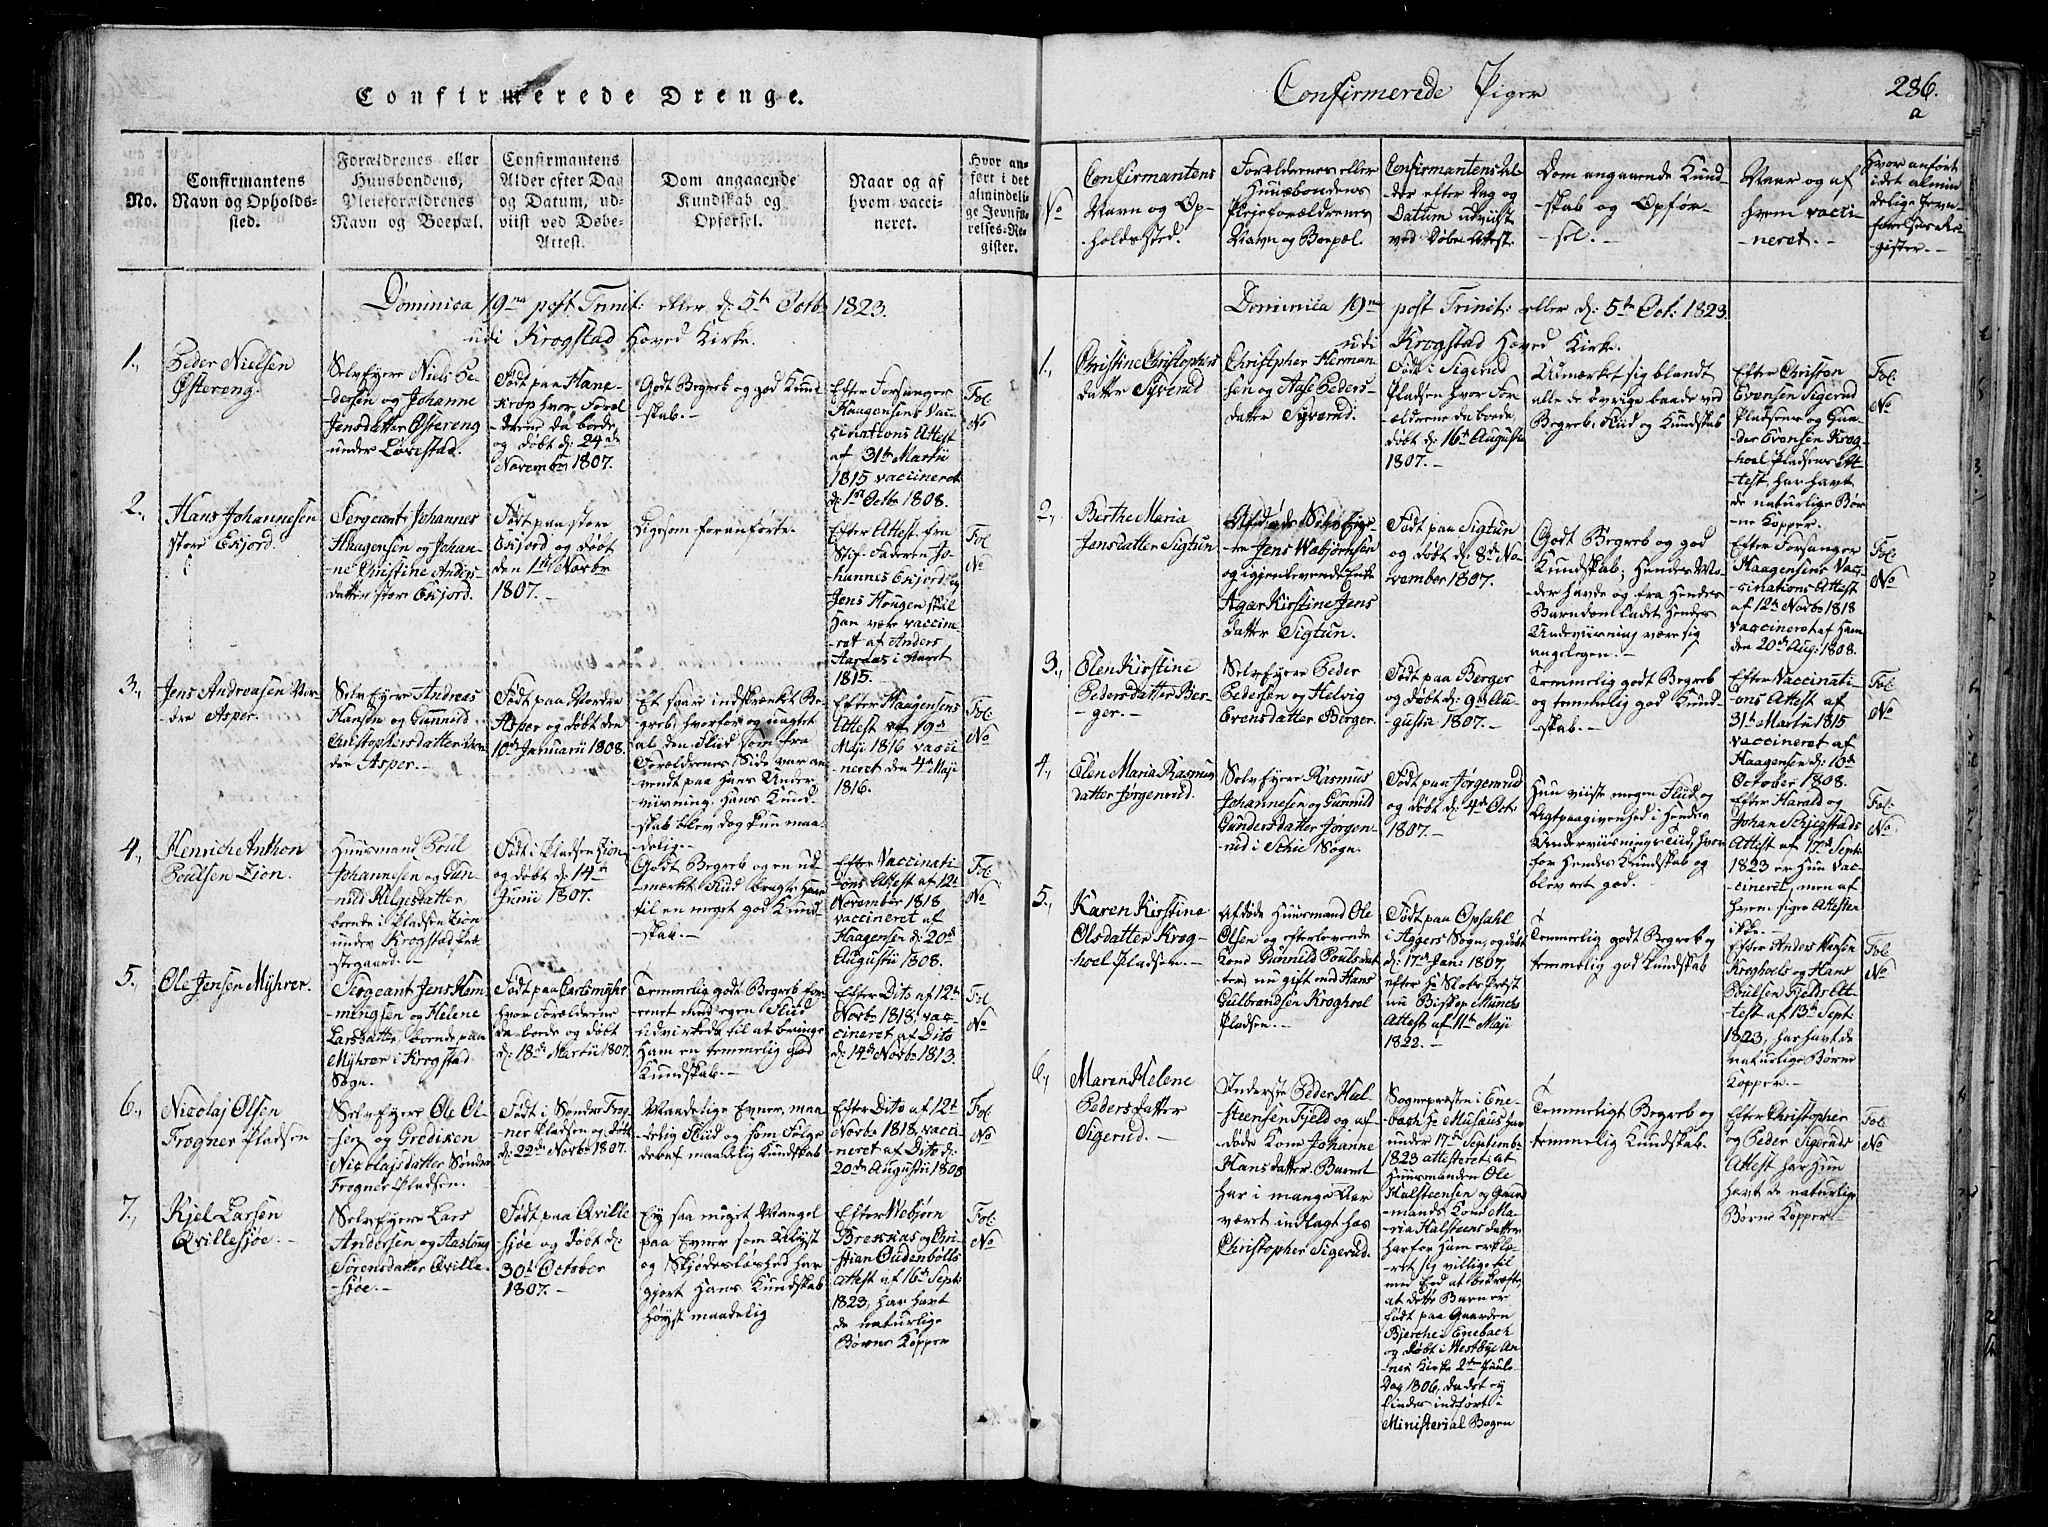 Confirmerede Drenge.
No.
Confirmantens
Navn og Opholds-
sted.
Forældrenes eller
Huusbondens,
Pleieforældrenes
Navn og Boepæl.
Confirmantens
Alder efter Dag
og Datum, ud-
viist ved Døbe-
Attest.
Dom angaaende
Kundskab og
Opførsel.
Naar og af
hvem vacci-
neret.
Hvor an-
ført i det
almindeli-
ge Jevnfø-
relses-Re-
gister.
Dominica 19na post Trinit: eller d: 5te Octb: 1823.
udi Krogstad Hoved Kirke.
1.,
Peder Nielsen
Østereng.
Selvejere Niels Pe-
dersen og Johanne
Jensdatter Østereng
under Løvestad.
Født paa Hane-
krop hvor Foræl-
drene da boede,
og døbt d: 24de
Novembr 1807.
Godt Begreb og god Kund-
skab.
Efter Forsanger
Haagensens Vac-
cinations Attest
af 31te Martii
1815 vaccineret
d: 1ste Octbr 1808.
Fol.
No
2.,
Hans Johannesen
store Eskjord.
Sergeant Johannes
Haagensen og Johan-
ne Christine Anders-
datter store Eskjord.
Født paa store
Eskjord og døbt
den 1ste Novbr
1807.
Ligesom foranførte.
Efter Attest fra
Stif-Faderen Jo-
hannes Eskjord og
Jens Hougen skal
Han være vaccine-
ret af Anders
Aaraas i Aaret
1815.
Fol.
No
3.,
Jens Andreasen Nor-
dre Asper.
Selvejere Andreas
Hansen og Gunnild
Christophersdatter Nor-
dre Asper.
Født paa Nordre
Asper og døbt den
10de Januarii 1808.
Et saare indskrænket Be-
greb, hvorfor og uagtet
al den Flid som fra
Forældrenes Side var an-
vendt paa Hans Under-
viisning, Hans Kund-
skab blev dog kun maa-
delig.
Efter Haagensens
Attest af 19de
Maji 1816 vacci-
neret den 4de Maji
1816.
Fol.
No
4.,
Henrich Anthon
Poulsen Zion.
Huusmand Poul
Johannesen og Gun-
nild Helgesdatter,
boende i Pladsen Zion
under Krogstad Præ-
stegaard.
Født i Pladsen Zion
og døbt d: 14de
Junii 1807.
Godt Begreb og en ud-
mærket Flid bragte Ham
til en meget god Kund-
skab.
Efter Vaccinati-
ons Attest af 12te
November 1818
vaccineret af
Haagensen d: 20de
Augustii 1808.
Fol.
No
5.,
Ole Jensen Myhrer.
Sergeant Jens Hem-
mingsen og Helene
Larsdatter, boende paa
Myhrer i Krogstad
Sogn.
Født paa Carlsmyhr
hvor Forældrene
da boede og døbt
d: 18de Martii 1807.
Temmelig godt Begreb for-
enet med egen Flid
udvirkede til at bringe
Ham en temmelig god
Kundskab.
Efter Dito af 12te
Novbr 1818 vac-
cineret af Dito
d: 14de Novbr 1813.
Fol.
No
6.,
Nicolaj Olsen
Frogner Pladsen
Selvejere Ole Ol-
sen og Grediken
Nicolajsdatter Søndre
Frogner Pladsen.
Født i Søndre Frog-
ner Pladsen og døbt
d: 22de Novbr 1807.
Maadelige Evner, maa-
delig Flid og som Følge
deraf maadelig Kundskab
Efter Dito af 12te
Novbr 1818, vacci-
neret af Dito d:
20de Augustii 1808
Fol.
No
7.,
Kjel Larsen
Qvillesjøe.
Selvejere Lars
Andersen og Aaslaug
Sørensdatter Qville-
sjøe.
Født paa Qville
sjøe og døbt d:
30te October
1807.
Ej saa meget Mangel
paa Evner som Ulyst
og Skjødesløshed har
gjort Hans Kundskab
høyst maadelig
Efter Webjørn
Brekkas og Chri-
stian Oudenbølls
Attest af 16de Sept:
1823, har havt
de naturlige
Børne Kopper
Fol.
No
Confirmerede Piger
286.
a
No
Confirmantens
Navn og Op-
holdssted.
Forældrenes eller
Huusbondens
Plejeforældrenes
Navn og Boepæl.
Confirmantens Al-
der efter Dag og
Datum udviist
ved Døbe-Attest.
Dom angaaende Kund-
skab og Opfør-
sel.
Naar og af
hvem vacci-
neret.
Hvor anført
i det almin-
delige Jevn-
førelses Re-
gister.
Dominica 19na post Trinit: eller d: 5te Oct: 1823.
udi Krogstad Hoved Kirke.
1.,
Christine Christophers
datter Syverud
Christopher Herman-
sen og Aase Peders-
datter Syverud.
Født i Sigerud
Pladsen hvor For-
ældrene da boede,
døbt d: 16de Augustii
1807.
Udmærket sig blandt
alle de øvrige baade ved
Begreb, Flid og Kundskab
Efter Christen
Evensen Sigerud
Pladsens og Gun-
der Evensen Krog-
hoel Pladsens At-
test, har havt
de naturlige Bør-
ne Kopper.
Fol.
No
2.,
Berthe Maria
Jensdatter Sigtun
Afdøde Selvejer-
re Jens Webjørnsen
og igjenlevende Enke
Agar Kirstine Jens
datter Sigtun.
Født paa Sigtun
og døbt d: 8de No-
vember 1807.
Godt Begreb og god
Kundskab; Hendes Mo-
der havde og fra Hendes
Barndom ladet Hendes
Underviisning være sig
angelegen.
Efter Forsanger
Haagensens Vac-
cinations Attest
af 12te Novbr 1818
vaccineret af Ham
den 20de Aug: 1808.
Fol.
No
3.,
Elen Kirstine
Pedersdatter Ber-
ger.
Selvejere Peder
Pedersen og Helvig
Evensdatter Berger.
Født paa Berger
og døbt d: 9de Au-
gustii 1807.
Temmelig godt Begreb
og temmelig god Kund-
skab.
Efter Vaccinati-
ons Attest af
31te Martii 1815
vaccineret af
Haagensen d: 10de
October 1808.
Fol.
No
4.,
Elen Maria Rasmus
datter Jørgenrud.
Selvejere Rasmus
Johannesen og Gunnild
Gundersdatter Jørgen-
rud i Schie Sogn.
Født paa Jørgenrud
og døbt d: 4de Octr
1807.
Hun viiste megen Flid og
Agtpaagivenhed i Hendes
Underviisningstiid, hvor-
for Hendes Kundskab og
blev ret god.
Efter Harald og
Johan Schiegstads
Attest af 17de Sept:
1823 er Hun vac-
cineret, men af
hvem sigre Attesten
ikke.
Fol.
No
5.,
Karen Kirstine
Olsdatter Krog-
hoel Pladsen.
Afdøde Huusmand Ole
Olsen og efterlevende
Kone Gunnild Poulsdat-
ter, nu gift med Hans
Gulbrandsen Kroghoel
Pladsen.
Født paa Opsahl
i Aggers Sogn, og døbt
d: 17de Jan: 1807,
efter Hr Slots-Præst
nu Biskop Munchs
Attest af 11te Maji
1822.
Temmelig godt Begreb og
temmelig god Kundskab
Efter Anders Hansen
Kroghoels og Hans
Poulsen Fjelds At-
test af 13de Sept:
1823, har havt de
naturlige Børne
Kopper.
Fol.
No
6.,
Maren Helene
Pedersdatter
Sigerud.
Inderste Peder Hal-
steensen Fjeld og af-
døde Kone Johanne
Hansdatter. Barnet
har i mange Aar
været indlagt hos
Christopher Sigerud.
Sognepræsten i Ene-
bach Hr Musæus har
under 17de Septembr
1823 attesteret: at
Huusmanden Ole
Halsteensen og Gaard
mands Kone Ma-
ria Halsteensdatter
har for Ham erklæ-
ret sig villige til
med Eed at bekræfte,
at dette Barn er
født paa Gaarden
Bjerche i Enebach
og døbt i Westbye An-
nex Kirke 2den Juule-
Dag 1806, da det ey
findes indført i
Ministerial Bogen
Temmeligt Begreb og
temmelig Kundskab.
Efter Christopher
og Peder Sigeruds
Attest har Hun
havt de naturlige
Børne Kopper
Fol.
No